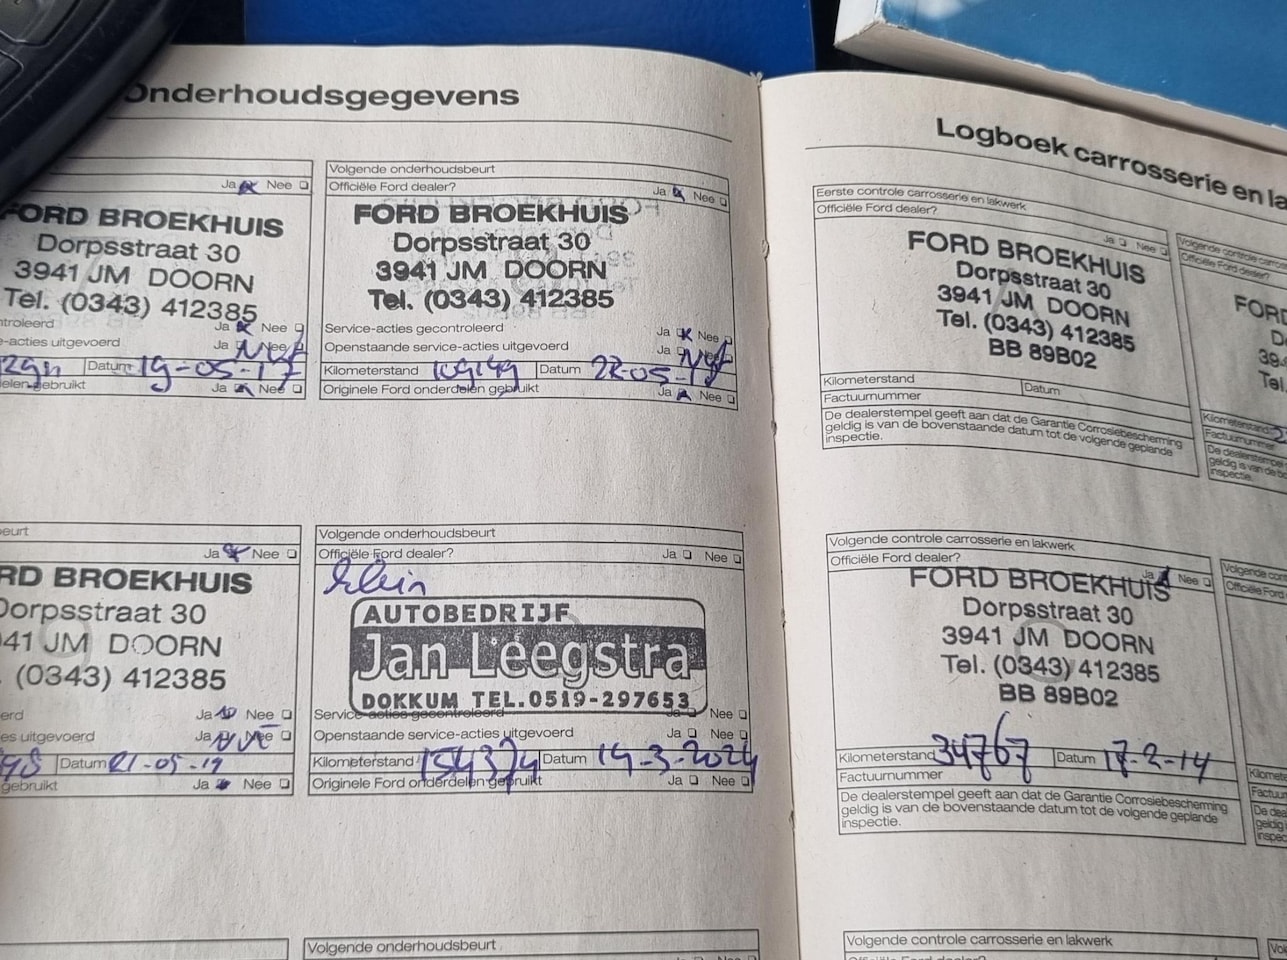 Onderhoudsgegevens
Ja Nee
FORD BROEKHUIS
Dorpsstraat 30
3941 JM DOORN
Tel. (0343) 412385
ntroleerd Ja Nee
e-acties uitgevoerd Ja Nee
Datum 19-05-17
elen gebruikt Ja Nee
Volgende onderhoudsbeurt
Officiële Ford dealer? Ja Nee
FORD BROEKHUIS
Dorpsstraat 30
3941 JM DOORN
Tel. (0343) 412385
Service-acties gecontroleerd Ja Nee
Openstaande service-acties uitgevoerd Ja Nee
Kilometerstand 109149 Datum 22-05-18
Originele Ford onderdelen gebruikt Ja Nee
beurt
Ja Nee
RD BROEKHUIS
Dorpsstraat 30
941 JM DOORN
. (0343) 412385
erd Ja Nee
es uitgevoerd Ja Nee
Datum 21-05-19
gebruikt Ja Nee
Volgende onderhoudsbeurt
Officiële Ford dealer? Ja Nee
klein
AUTOBEDRIJF
Jan Leegstra
DOKKUM TEL.0519-297653
Service-acties gecontroleerd Ja Nee
Openstaande service-acties uitgevoerd Ja Nee
Kilometerstand 154374 Datum 14-3-2024
Originele Ford onderdelen gebruikt Ja Nee
Volgende onderhoudsbeurt
Logboek carrosserie en la
Eerste controle carrosserie en lakwerk
Officiële Ford dealer?
Ja Nee
FORD BROEKHUIS
Dorpsstraat 30
3941 JM DOORN
Tel. (0343) 412385
BB 89B02
Kilometerstand Datum
Factuurnummer
De dealerstempel geeft aan dat de Garantie Corrosiebescherming
geldig is van de bovenstaande datum tot de volgende geplande
inspectie.
Volgende cont
Officiële Ford dealer?
FORD
Do
39
Tel
Kilometerstand
Factuurnummer
De dealerste
geldig is van de b
inspectie.
Volgende controle carrosserie en lakwerk
Officiële Ford dealer?
Ja Nee
FORD BROEKHUIS
Dorpsstraat 30
3941 JM DOORN
Tel. (0343) 412385
BB 89B02
Kilometerstand 34767 Datum 17-2-14
Factuurnummer
De dealerstempel geeft aan dat de Garantie Corrosiebescherming
geldig is van de bovenstaande datum tot de volgende geplande
inspectie.
Volgende con
Officiële Ford
Kilomete
Factuurn
De dea
geldig
inspec
Volgende controle carrosserie en lakwerk